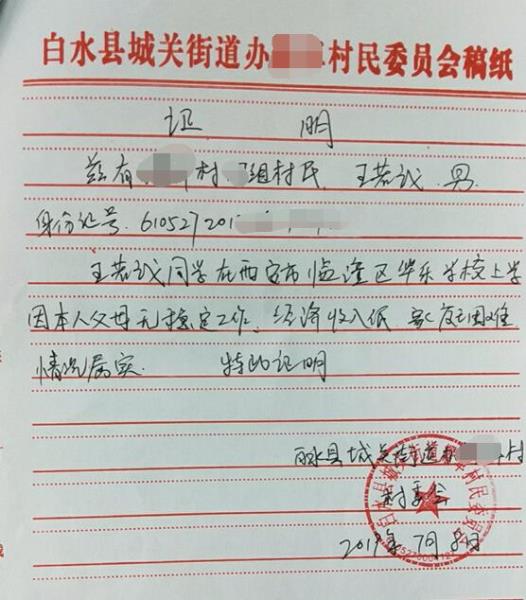 白水县城关街道办 村民委员会稿纸
证 明
兹有 村 组村民 王若诚 男
身份证号 61052720
王若诚同学在西安市临潼区华乐学校上学
因本人父母无稳定工作、经济收入低 家庭困难
情况属实. 特此证明
白水县城关街道办 村
村委会
2019年7月8日
白水县城关 村民委员会